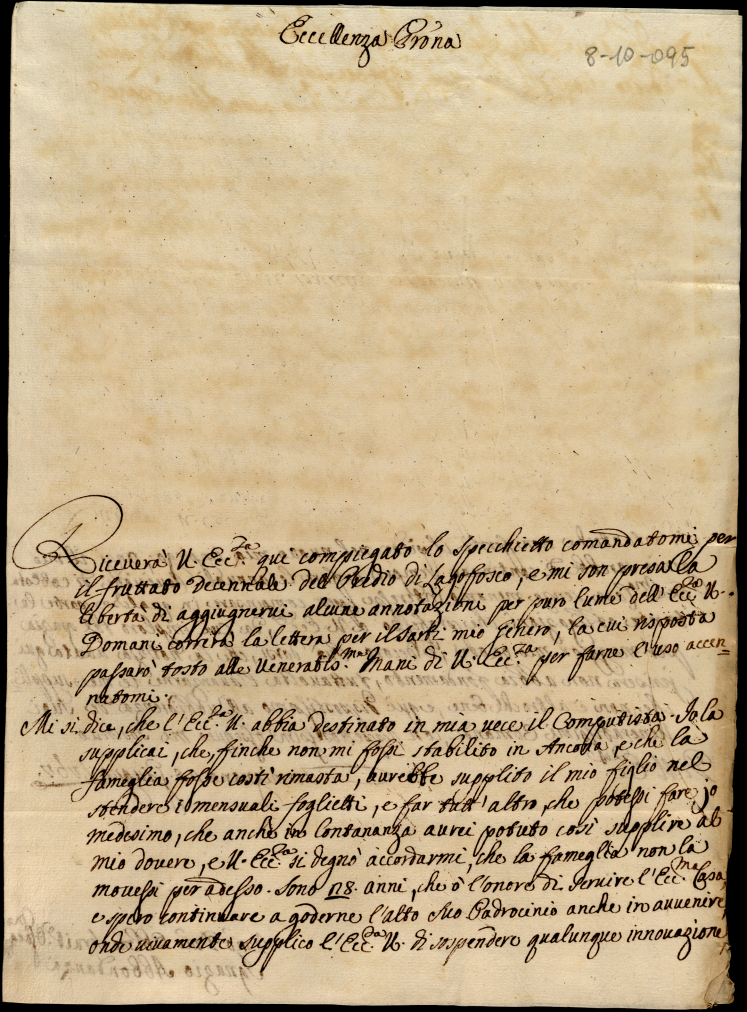 Eccellenza Prona
8-10-095
Riceverà V. Ecc.za qui compiegato lo specchietto comandatomi per
il fruttato Decennale del Predio di Lagofosco, e mi son presa la
libertà di aggiugnervi alcune annotazioni per puro lume dell'Ecc.za V.
Domani correrà la lettera per il Sarti mio Genero, la cui risposta
passarò tosto alle veneratis.me Mani di V. Ecc.za per farne l'uso accen=
natomi.
Mi si dice, che l'Ecc.za V. abbia destinato in mia vece il Computista. Io la
supplicai, che finche non mi fossi stabilito in Ancona, e che la
fameglia fosse costì rimasta, avrebbe supplito il mio figlio nel
stendere i mensuali foglietti, e far tutt'altro, che potessi fare io
medesimo, che anche in lontananza avrei potuto così supplire al
mio dovere, e V. Ecc.za si degnò accordarmi, che la fameglia non la
movessi per adesso. Sono 28. anni, che ò l'onore di servire l'Ecc.ma Casa,
e spero continuare a goderne l'alto suo Padrocinio anche in avvenire,
onde vivamente supplico l'Ecc.za V. di sospendere qualunque innovazione